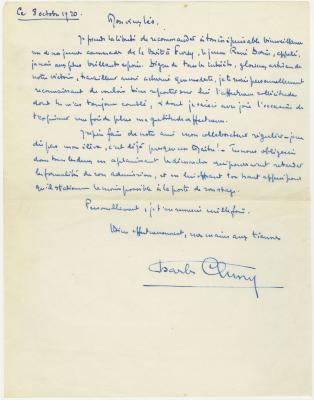 Ce 8 octobre 1920.
Mon
Je prends la liberté de recommander à ton inépuisable bienveillance
un de nos jeunes camarades de la Société, le jeune René, appelé,
je crois, au plus brillant espoir. Digne de tous les intérêts, glorieux artisan de
notre victoire, travailleur aussi acharné que modeste, je te serais personnellement
reconnaissant de vouloir bien reporter sur lui l'affectueuse sollicitude
dont tu m'as toujours comblé, & dont je saisis avec joie l'occasion de
t'exprimer une fois de plus ma gratitude affectueuse.
J'espère faire de notre ami mon collaborateur régulier — je ne
dis pas mon élève, c'est déjà presque un Maître! — Tu nous obligerais
donc tous les deux en aplanissant les démarches qui pourraient retarder
les formalités de son admission, et en lui offrant ton haut appui pour
qu'il stationne le moins possible à la porte de son stage.
Personnellement, je t'en remercie mille fois.
Bien affectueusement, mes mains aux tiennes
Charles